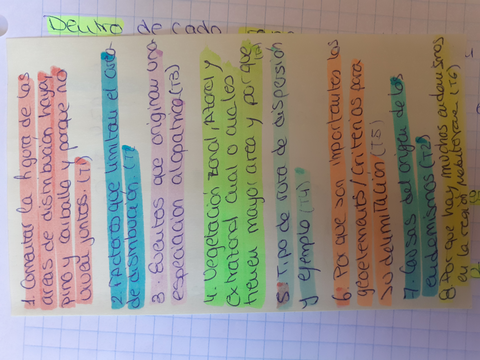 Dentro de cada
1. Comentar la figura de las
áreas de distribución haya,
pino y carballa y porque no
viven juntos. (T1)
2. Factores que limitan el área
de distribución. (T1)
3. Eventos que originan una
especiación alopatrica (T3)
4. Vegetación zonal, Azonal y
extrazonal cual o cuales
tienen mayor area y por que
5. Tipo de ruta de dispersión
y ejemplo (T4)
6. Por que son importantes los
geoelementos / criterios para
su delimitación (T5)
7. Causas del origen de los
endemismos (T2)
8. Por que hay muchos endemismos
en la región (T6)